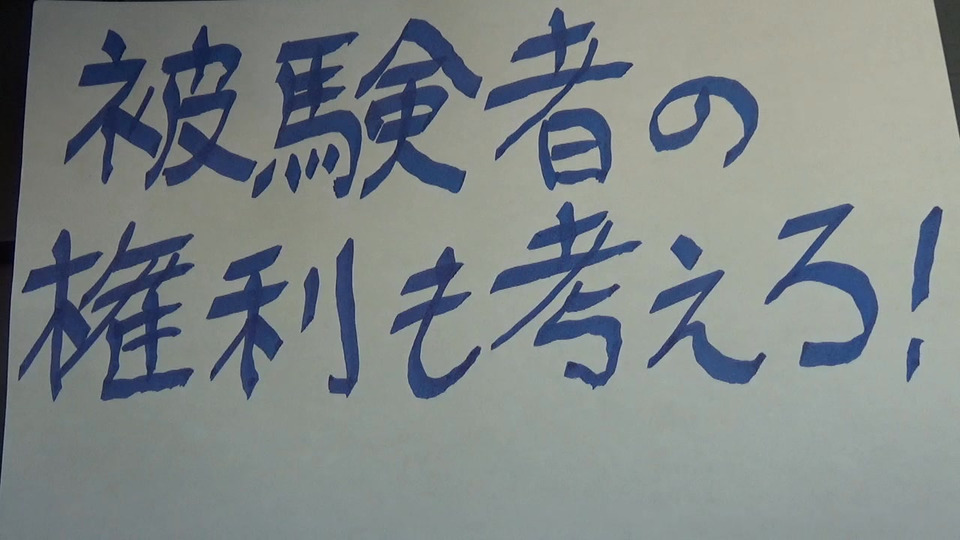 被験者の
権利も考えろ!